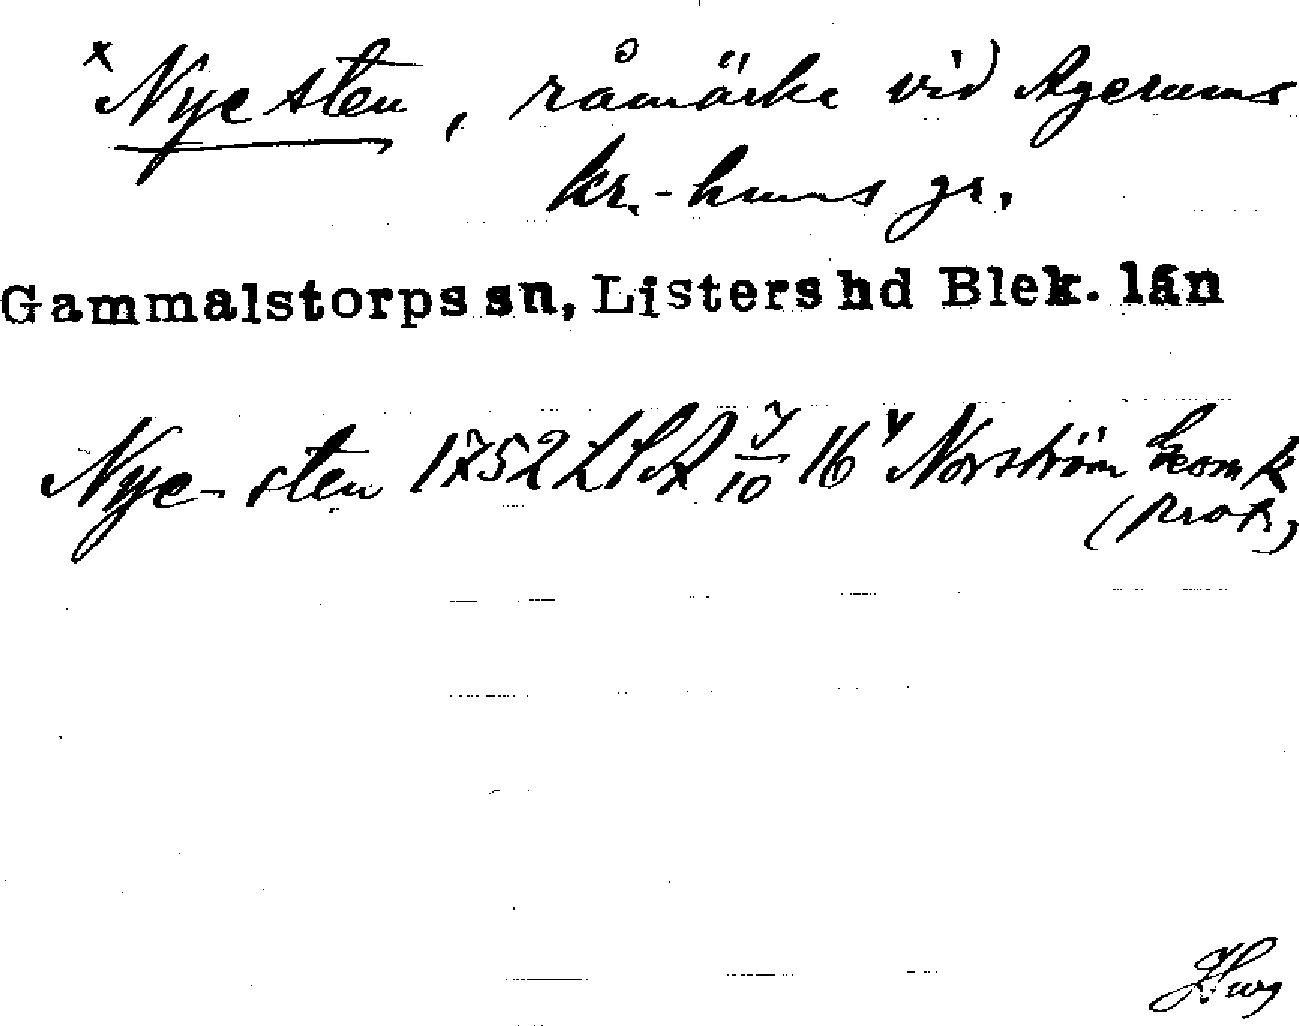 × Nye sten, råmärke vid Agerums
kr.-hems gr.
Gammalstorps sn, Listers hd Blek. län
Nye-sten 1752 LSA 7/10 16 v Norström Geom k
(prot.)